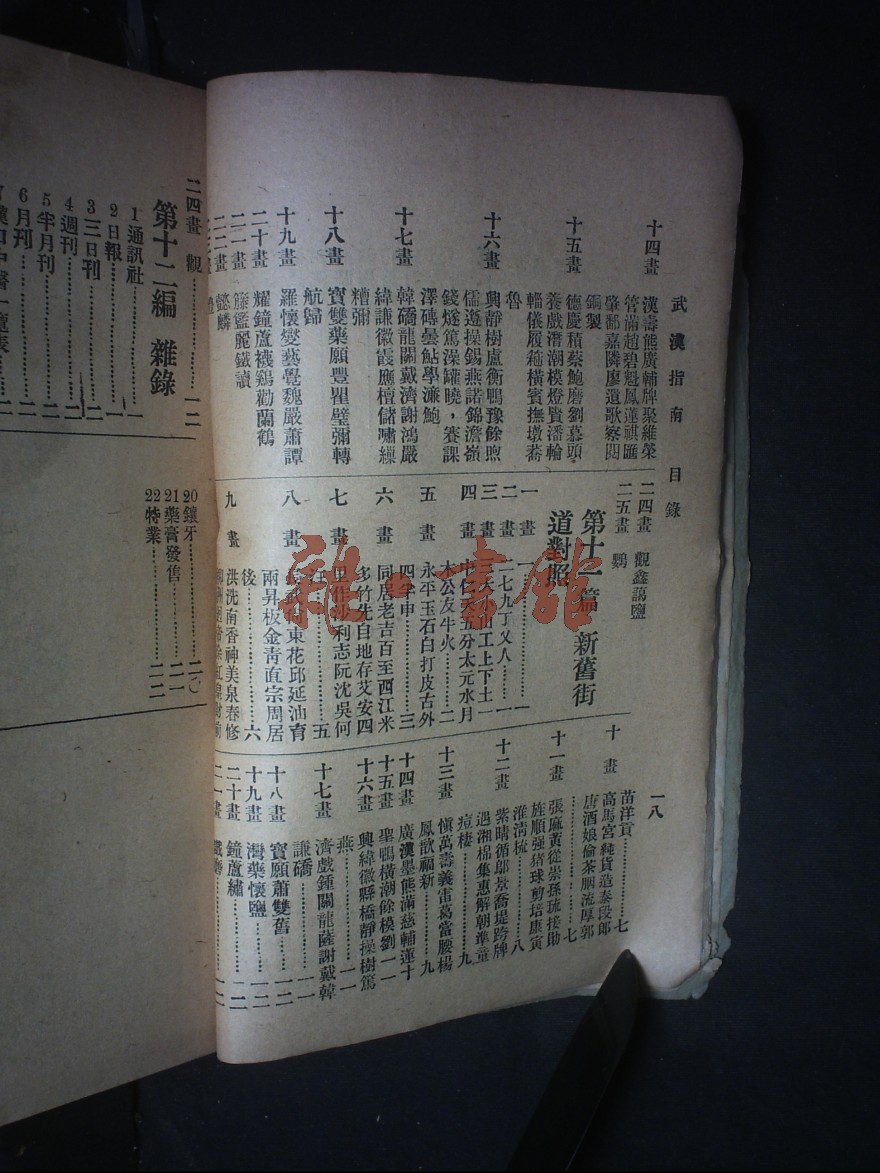 武漢指南 目錄
一八
十四畫 漢壽能廣輔牌聚維榮
管滿趙碧魁鳳蓮祺匯
肇鄱嘉隣廖遺歌察閤
銅製
十五畫 德慶積蔡鮑磨劉慕頭
養戲潛潮模橙賓潘輪
輜儀履箍橫賓撫墩蕎
魯
十六畫 興靜樹盧衡鴨豫餘煦
儒邊操錫燕諾錦澹嶺
錢燧篤澡罐曉，賽課
澤磚曇鮎學濂鮑
十七畫 韓礄龍關戴濟謝鴻嚴
緯謙徽霞應檀儲嘯繰
糟彌
十八畫 寶雙藥願豐瞿璧彌轉
航歸
十九畫 羅懷變藝覺魏嚴蕭譚
二十畫 耀鐘蘆襪鷄勸蘭鶴
二一畫 籐鑑麗鐵讀
二二畫 懿麟
二四畫 觀鑫藹鹽
二五畫 鸚
第十一篇 新舊街
道對照
一 畫 一……一
二 畫 二七九丁乂人……一
三 畫 山工上下土一
四 畫 五分太元水月
木公友牛火……二
五 畫 永平玉石白打皮古外
四 申……三
六 畫 同居老吉百至西江米
多竹先自地存艾安四
七 畫 里作沙利志阮沈吳何
……五
八 畫 長 東花邱延油育
兩昇板金青直宗周居
後……六
九 畫 洪洗南香神美泉春修
十 畫 苗洋貢……七
高馬宮純貨造泰段郎
唐酒娘偷茶胭流厚郭
……七
十一畫 張麻黃從崇孫琉接勛
旌順强豬球剪培康寅
淮淸梳……八
十二畫 紫晴循鄔景喬堤跨牌
遇湘棉集惠解朝準童
痘棲……九
十三畫 愼萬壽義雷葛當腰楊
鳳歆福新……九
十四畫 廣漢墨熊滿慈輔蓮十
十五畫 聖鴨橫潮餘模劉一一
十六畫 興緯徽縣橋靜操樹篤
燕……一一
十七畫 濟戲鍾關龍薩謝戴韓
謙礄……一一
十八畫 寶願蕭雙舊……一二
十九畫 灣藥懷鹽……一二
二十畫 鐘蘆繡……一二
二一畫 ……一二
二四畫 觀……一二
第十二編 雜錄
1通訊社……一
2日報……一
3三日刊……二
4週刊……二
5半月刊……二
6月刊……二
20鑲牙……二〇
21藥膏發售……二一
22特業……二二
雜·書館